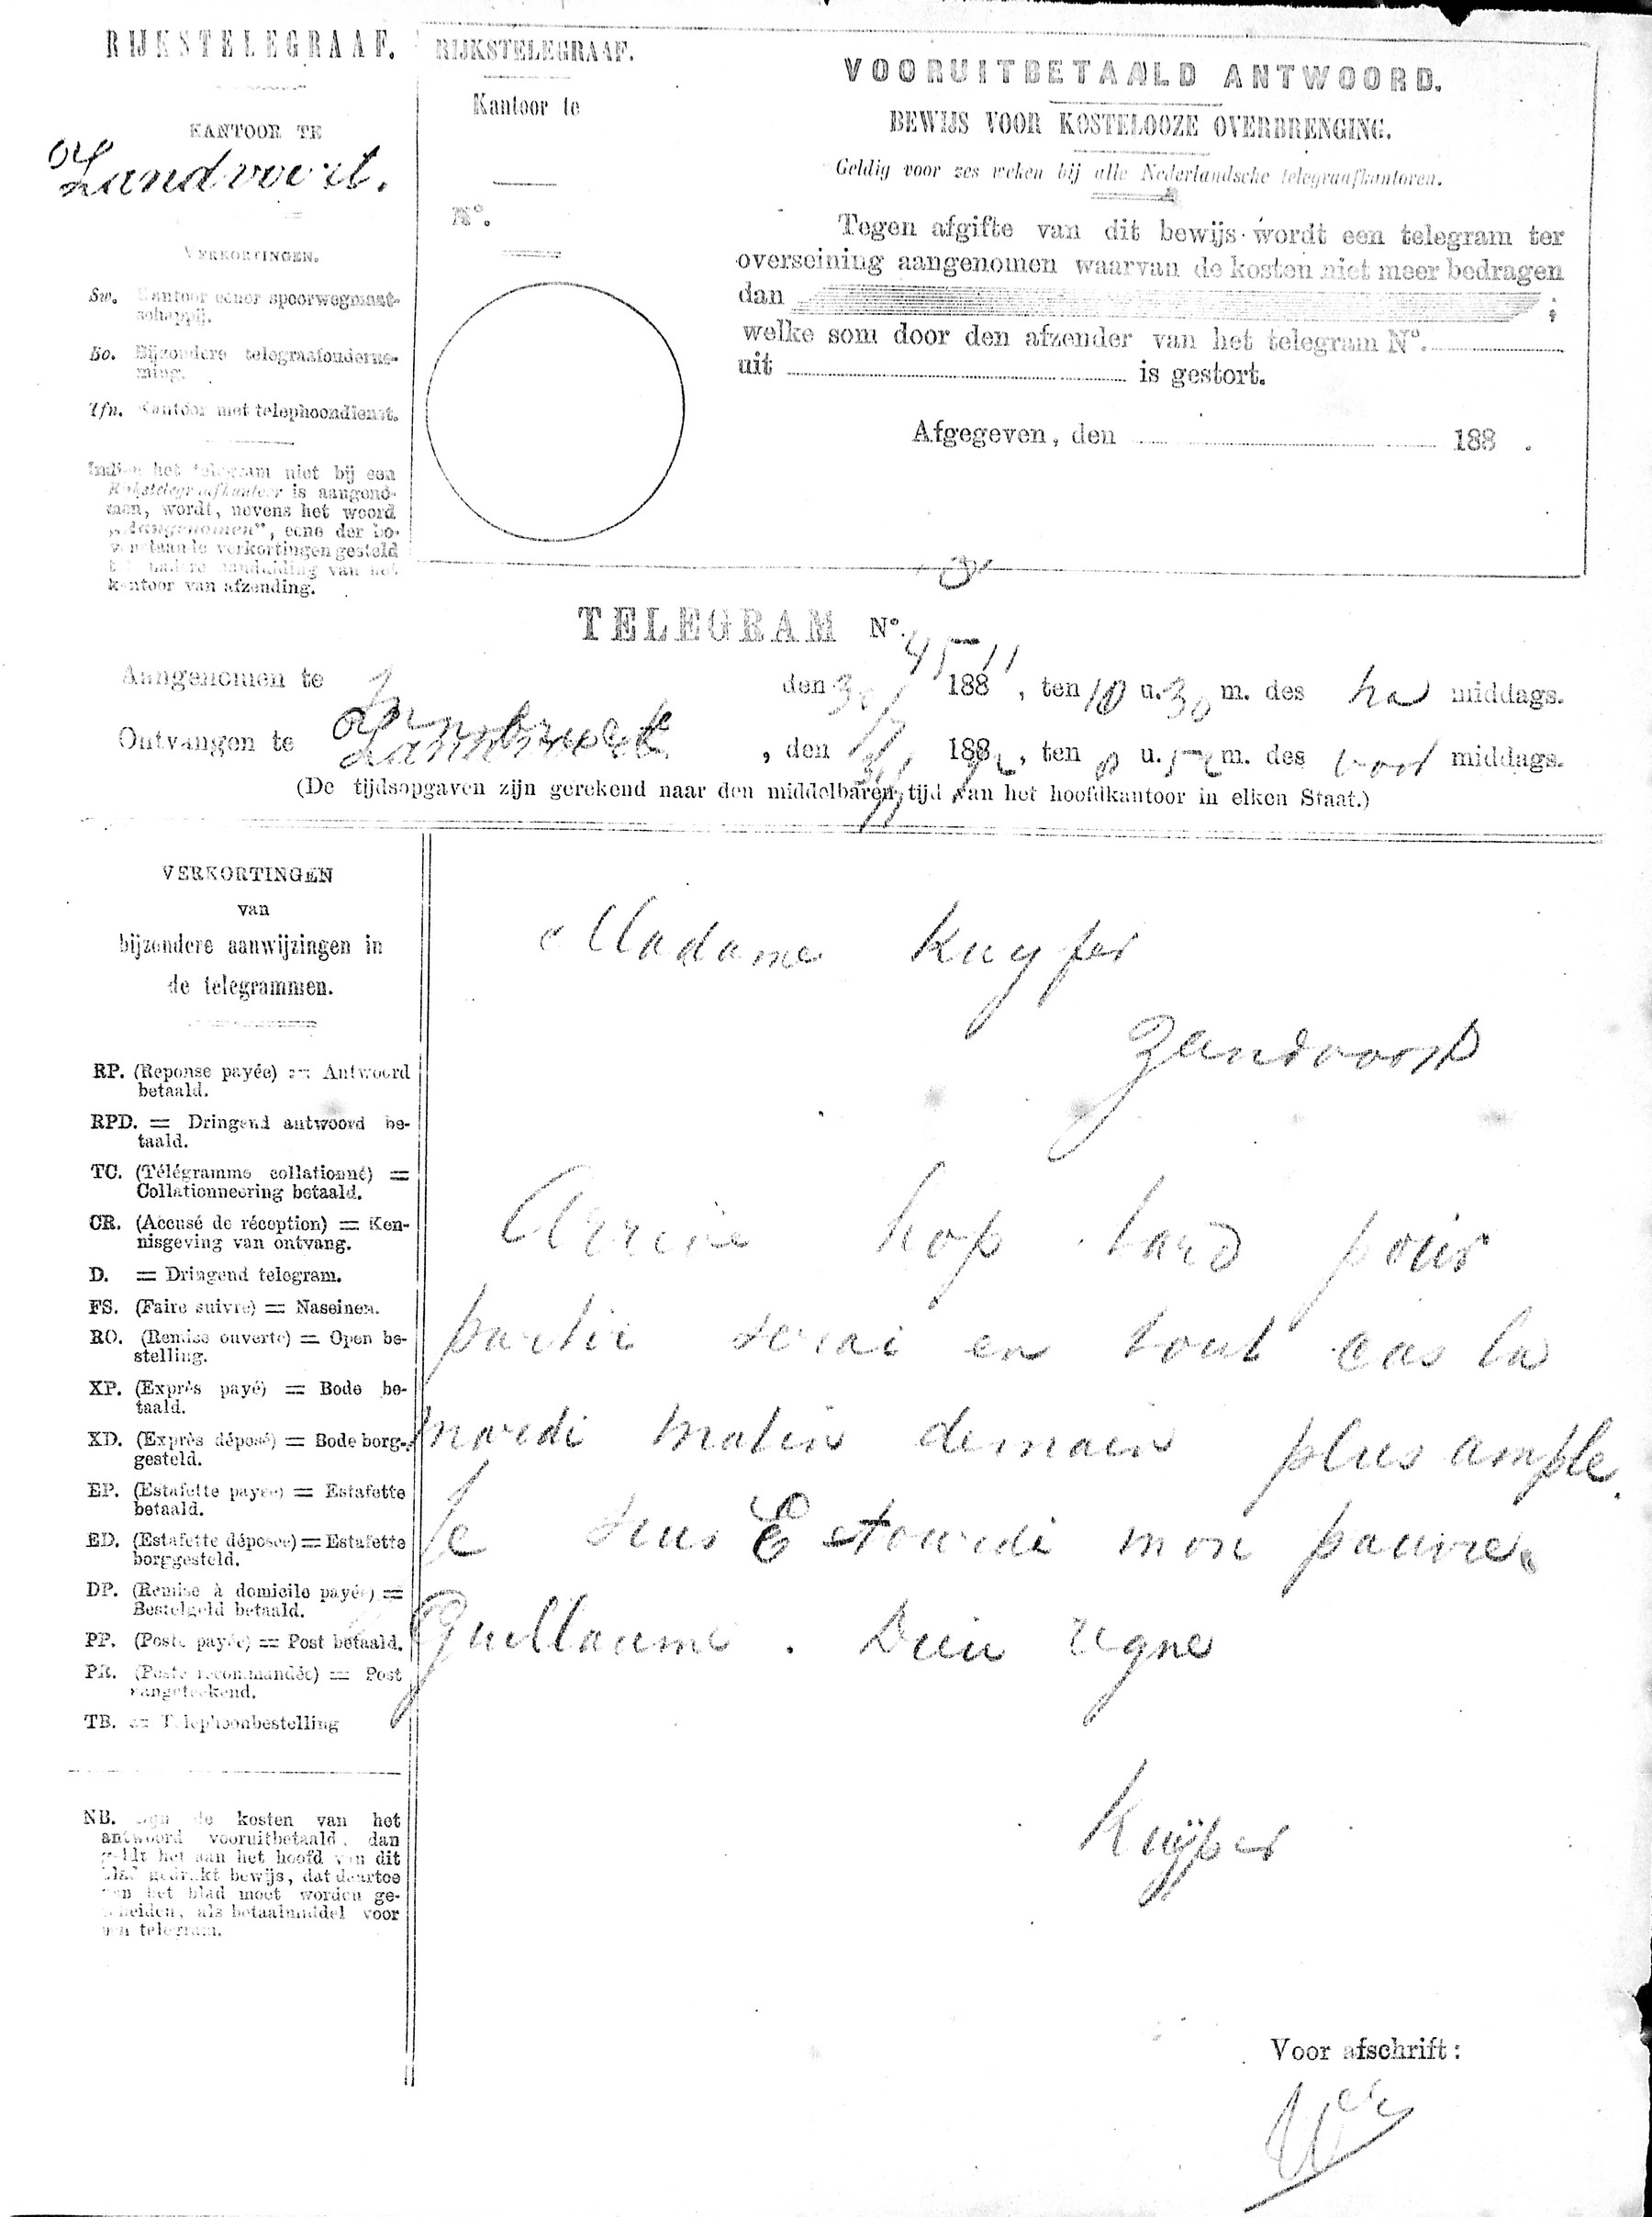 RIJKSTELEGRAAF.
KANTOOR TE
Zandvoort.
VERKORTINGEN.
Sw. Kantoor eener spoorwegmaat-
schappij.
Bo. Bijzondere telegraafonderne-
ming.
Tfn. Kantoor met telephoondienst.
Indien het telegram niet bij een
Rijkstelegraafkantoor is aangeno-
men, wordt, nevens het woord
„Aangenomen", eene der bo-
venstaande verkortingen gesteld
tot nadere aanduiding van het
kantoor van afzending.
RIJKSTELEGRAAF.
Kantoor te
N°.
VOORUITBETAALD ANTWOORD.
BEWIJS VOOR KOSTELOOZE OVERBRENGING.
Geldig voor zes weken bij alle Nederlandsche telegraafkantoren.
Tegen afgifte van dit bewijs wordt een telegram ter
overseining aangenomen waarvan de kosten niet meer bedragen
dan ;
welke som door den afzender van het telegram N°.
uit is gestort.
Afgegeven, den 188 .
TELEGRAM N°. 45
Aangenomen te Innsbruck den 30/7 188 , ten 10 u. 30 m. des na middags.
Ontvangen te Zandvoort, den 31/7 1892, ten 8 u. 52 m. des voor middags.
(De tijdsopgaven zijn gerekend naar den middelbaren tijd van het hoofdkantoor in elken Staat.)
VERKORTINGEN
van
bijzondere aanwijzingen in
de telegrammen.
RP. (Reponse payée) = Antwoord
betaald.
RPD. = Dringend antwoord be-
taald.
TC. (Télégramme collationné) =
Collationneering betaald.
CR. (Accusé de réception) = Ken-
nisgeving van ontvang.
D. = Dringend telegram.
FS. (Faire suivre) = Naseinen.
RO. (Remise ouverte) = Open be-
stelling.
XP. (Exprès payé) = Bode be-
taald.
XD. (Exprès déposé) = Bode borg-
gesteld.
EP. (Estafette payée) = Estafette
betaald.
ED. (Estafette déposée) = Estafette
borggesteld.
DP. (Remise à domicile payée) =
Bestelgeld betaald.
PP. (Poste payée) = Post betaald.
PR. (Poste recommandée) = Post
aangeteekend.
TB. = Telephoonbestelling
NB. Zijn de kosten van het
antwoord vooruitbetaald, dan
geldt het aan het hoofd van dit
blad gedrukt bewijs, dat daartoe
van het blad moet worden ge-
scheiden, als betaalmiddel voor
een telegram.
Madame Kuyper
Zandvoort
Arrive trop tard pour
partir serai en tout cas la
mardi matin demain plus ample
Je suis Etourdi mon pauvre
Guillaume. Dieu regne
Kuyper
Voor afschrift: